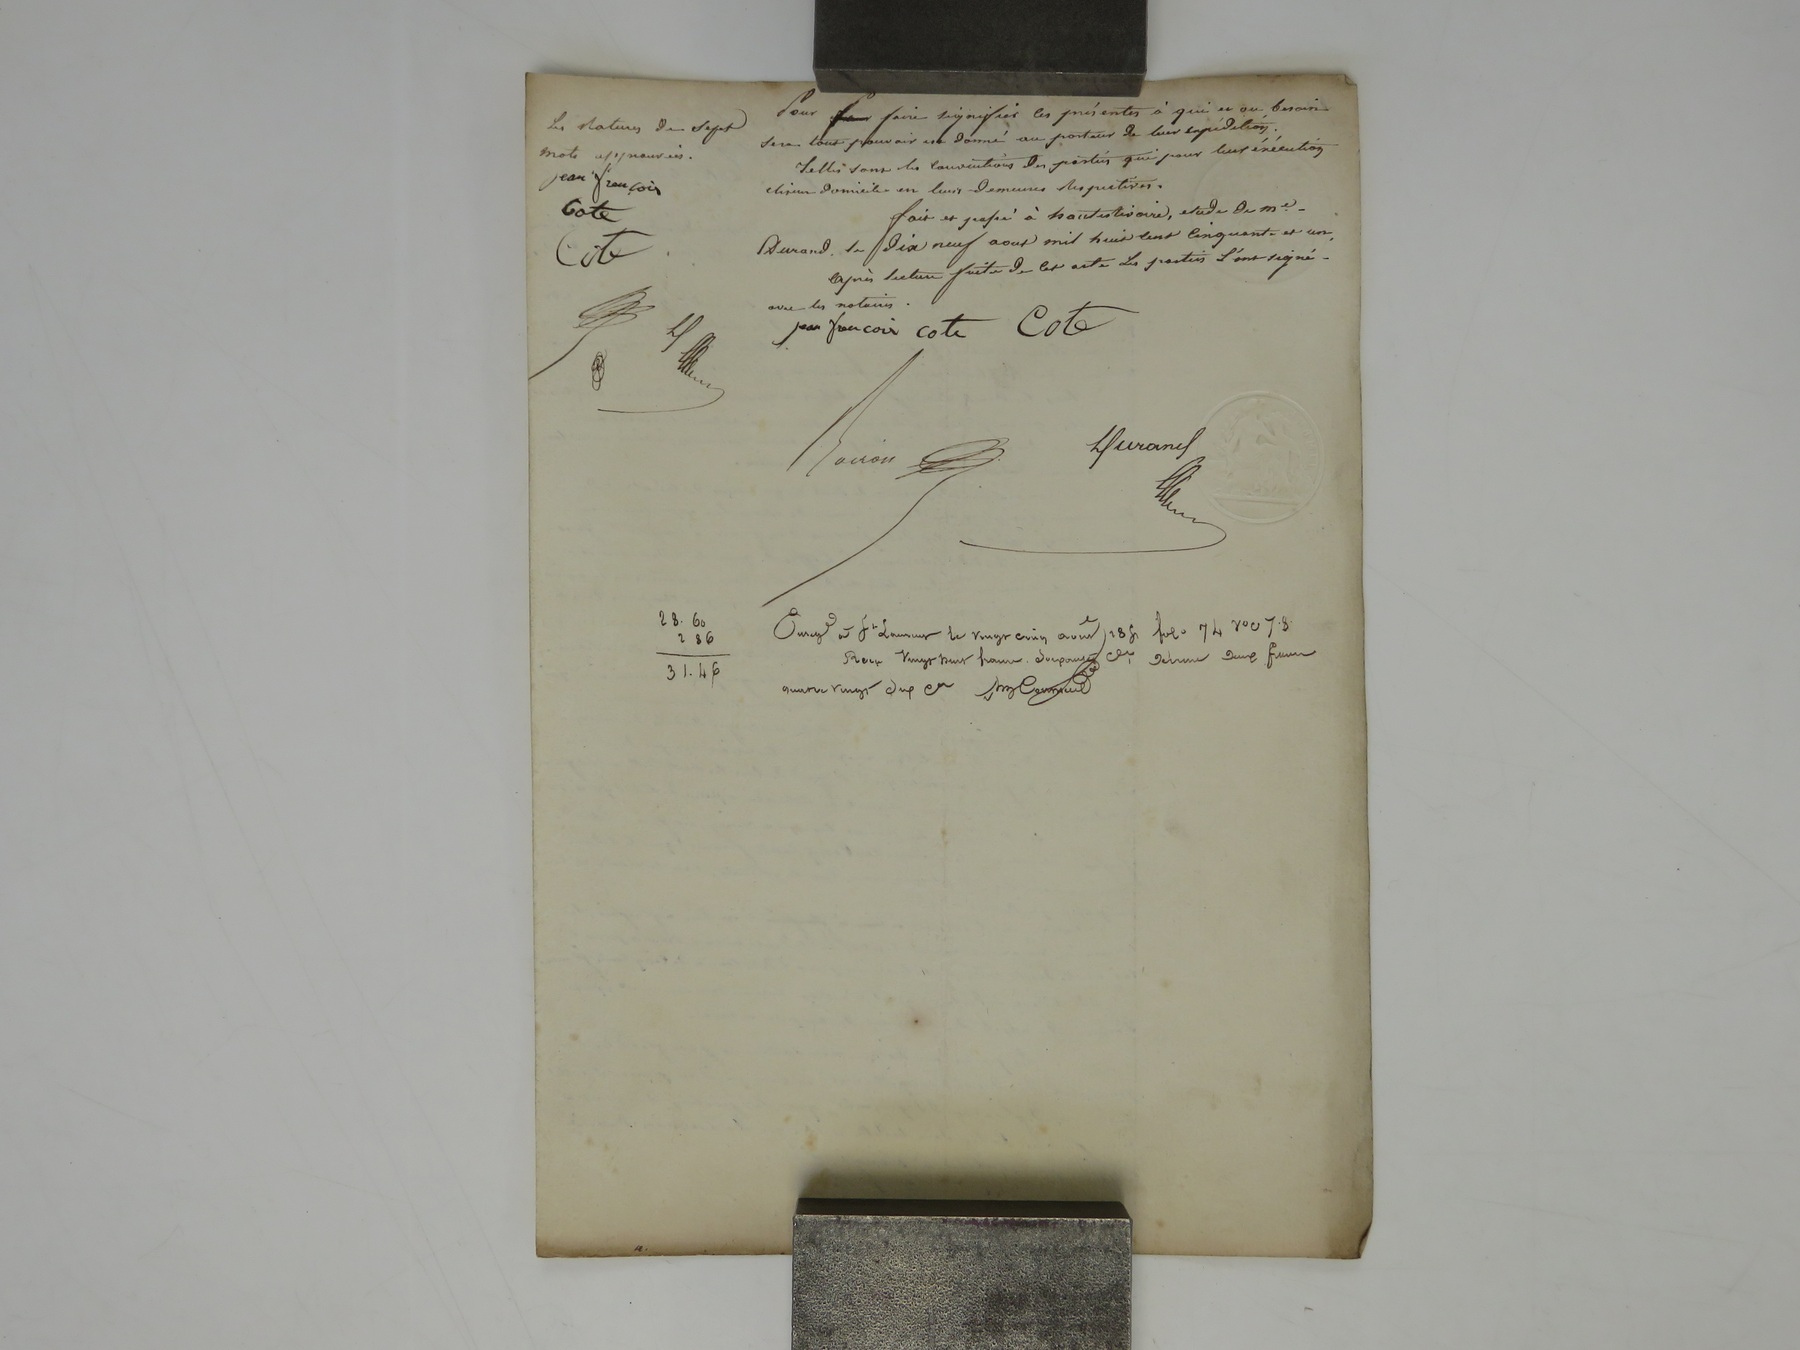 La rature de sept
mots approuvée.
jean françois
Cote
Cote
Pour faire signifier les présentes à qui et au besoin
sera tout pouvoir est donné au porteur de leur expédition.
Telles sont les conventions des parties qui pour leur éxécution
élisent domicile en leurs demeures respectives.
fait et passé à hauterivoire, etude de me
Durand, le dix neuf aout mil huit cent cinquante et un,
Après lecture faite de cet acte les parties l'ont signé
avec les notaires.
jean françois cote Cote
Durand
28. 60
2 86
31. 46
Enregé à St Laurent le vingt cinq aout 1851 folo 74 Vo C 7.8
Recu vingt huit francs soixante ces décime deux francs
quatre vingt six ces